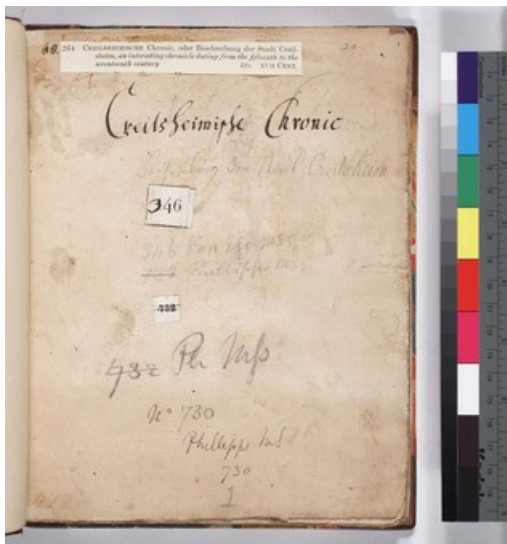 60. 264 Creilsheimische Chronic, oder Beschreibung der Stadt Creil-
sheim, an interesting chronicle dating from the fifteenth to the
seventeenth century XVII Cent.
20
Creilsheimische Chronic
der Stadt Creilsheim
346
346 Von Ess MSS
732 Phillipps MSS
732
732 Ph MSS
No 730
Phillipps MS
730
1